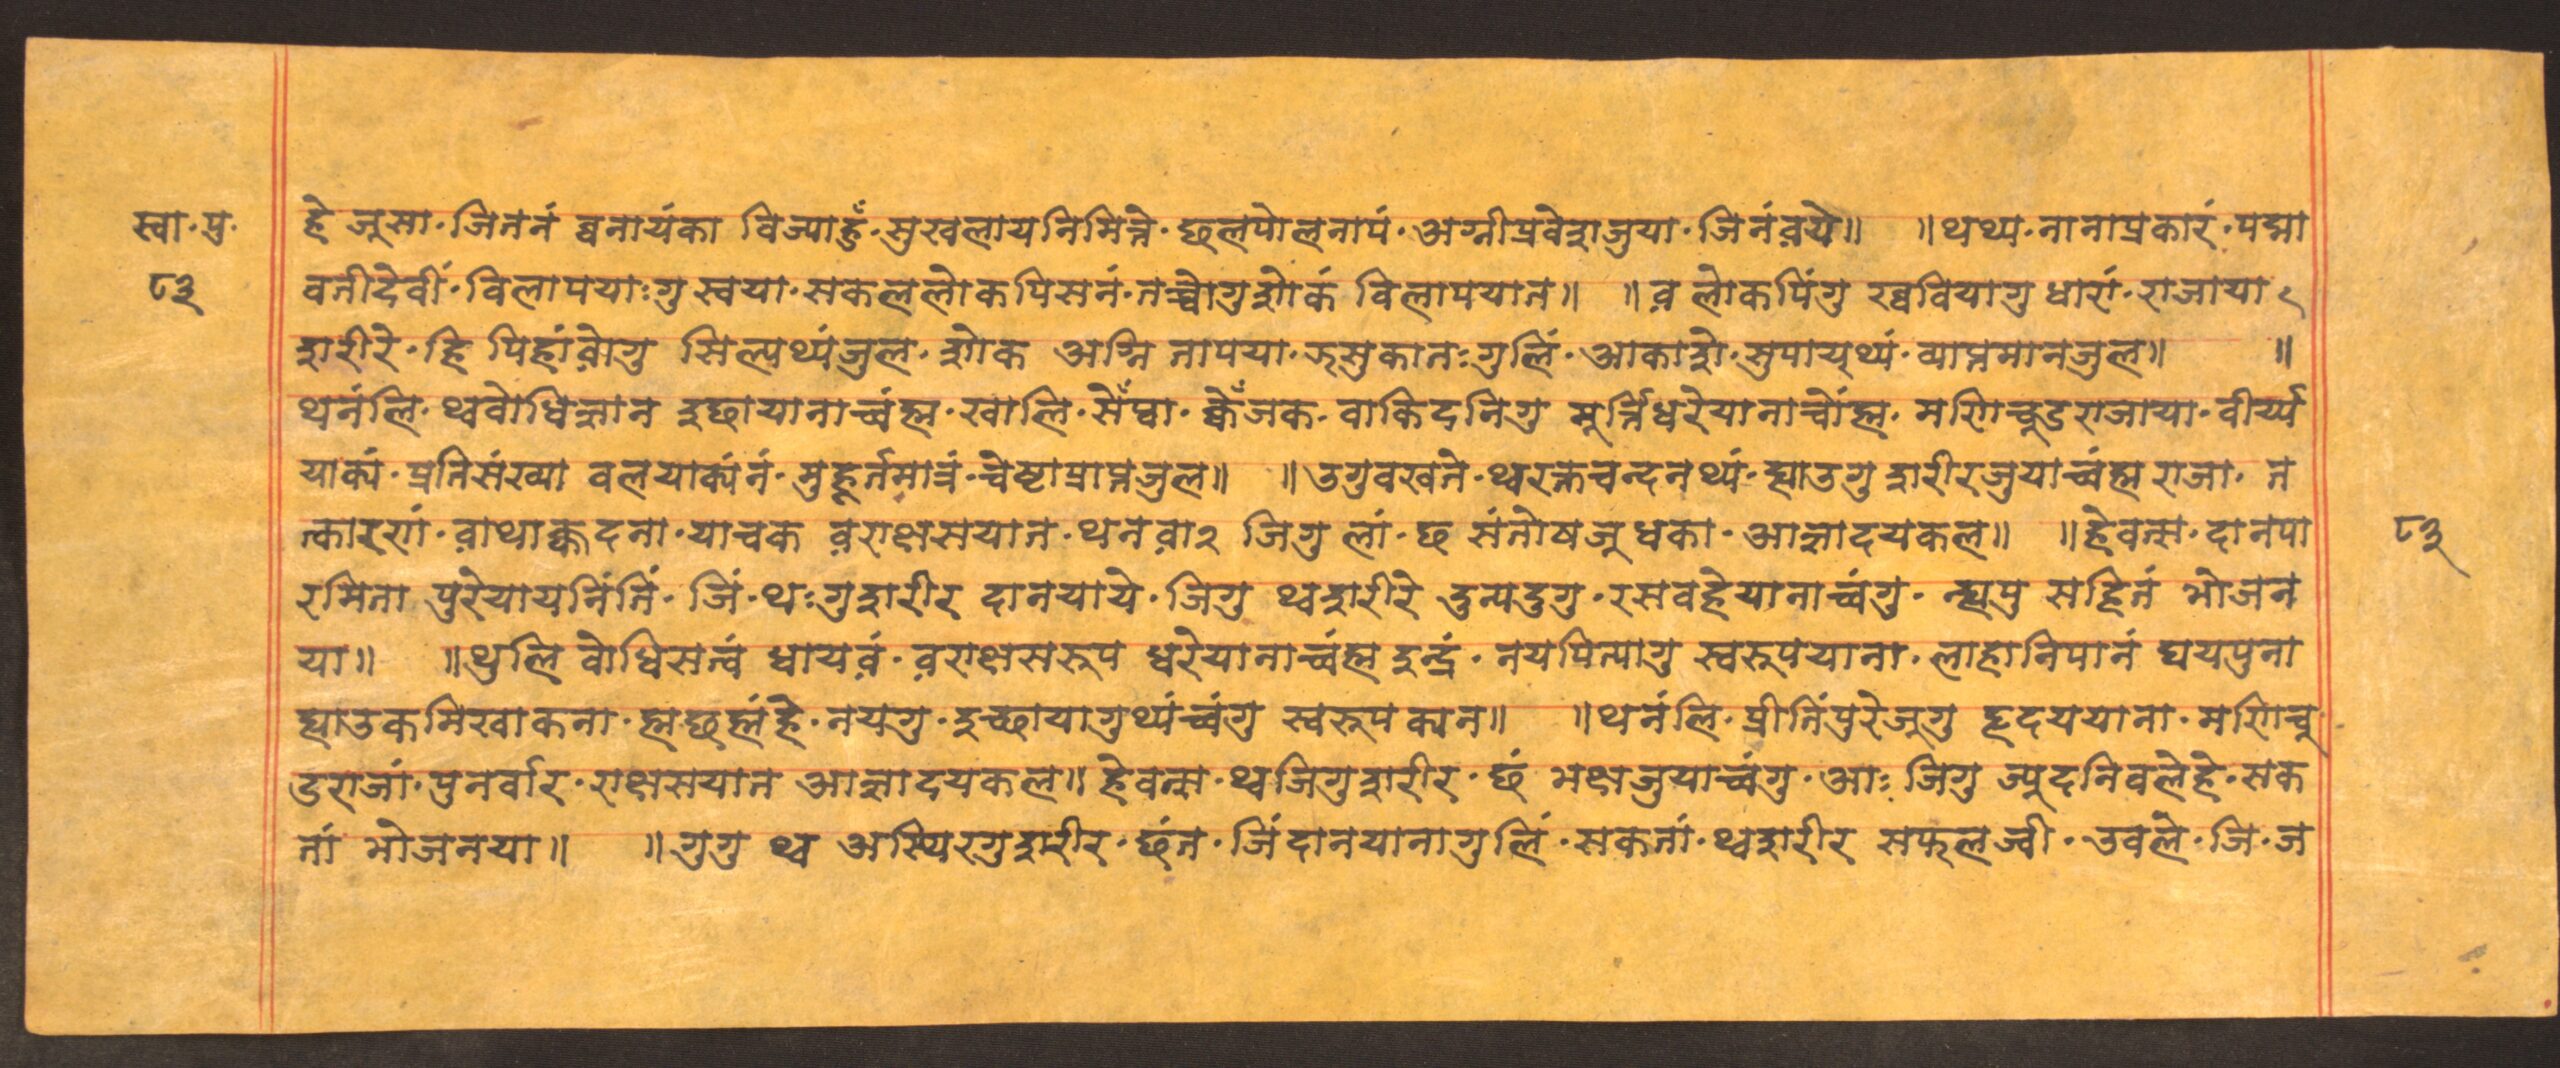 स्वा॰ पु॰
८३
हे जुसा॰ जिनतं ब्वनायंका विज्याहुँ॰ सुखलायनिमित्ते॰ छलपोलनापं॰ अग्नीप्रवेशजुया॰ जिनंव़ये॥ ॥थथ्य॰ नानाप्रकारं॰ पद्मा
वतीदेवीं॰ विलापयाःगु स्वया॰ सकललोकपिसनं॰ तच्वोगुशोकं विलापयात॥ ॥व़ लोकपिंगु ख्ववियागु धारां॰ राजाया २
शरीरे॰ हि पिहांव़ोगु सिल्पथ्यंजुल॰ शोक अग्नि तापया॰ कुसुकातःगुलिं॰ आकाशे॰ सुपाय्थ्यं॰ व्याप्तमानजुल॥ ॥
थनंलि॰ थ्ववोधिज्ञान इछायानाच्वंह्म॰ खालि॰ सेँप्वा॰ क्वेँजक॰ वाकिदनिगु मूर्त्तिधरेयानाच्वोंह्म॰ मणिचूडराजाया॰ वीर्य्य
याक्यं॰ प्रतिसंख्या वलयाक्यंनं॰ मुहूर्त्तमात्रं॰ चेष्टाप्राप्तजुल॥ ॥उगुवखते॰ थ्वरक्तचन्दनथ्यं॰ ह्याउगु शरीरजुयाच्वंह्म राजा॰ त
त्कारणं॰ व़ाथाक्कदना॰ याचक व़राक्षसयात॰ थनव़ा२ जिगु लां॰ छ संतोषजु धका॰ आज्ञादयकल॥ ॥हेवत्स॰ दानपा
८३
रमिता पुरेयायनिंतिं॰ जिं॰ थःगुशरीर दानयाये॰ जिगु थ्वशरीरे दुत्पदुगु॰ रसवहेयानाच्वंगु॰ न्ह्यपु सहितं भोजन
या॥ ॥थुलि वोधिसत्वं धायव़ं॰ व़राक्षसरूप धरेयानाच्वंह्म इन्द्रं॰ नयपित्यागु स्वरूपयाना॰ लाहानिपानं घयपुना
ह्याउकमिखाकना॰ ह्मछह्मंहे॰ नयगु॰ इच्छायागुथ्यंच्वंगु स्वरूपक्यन॥ ॥थनंलि॰ प्रीतिंपुरेजूगु हृदययाना॰ मणिचू
डराजां॰ पुनर्वार॰ राक्षसयात आज्ञादयकल॥ हेवत्स॰ थ्वजिगुशरीर॰ छं भक्षजुयाच्वंगु॰ आः जिगु ज्यूदनिवलेहे॰ सक
तां भोजनया॥ ॥गुगु थ्व अस्थिरगुशरीर॰ छंत॰ जिंदानयानागुलिं॰ सकतां॰ थ्वशरीर सफूलज्वी॰ उवले॰ जि॰ ज